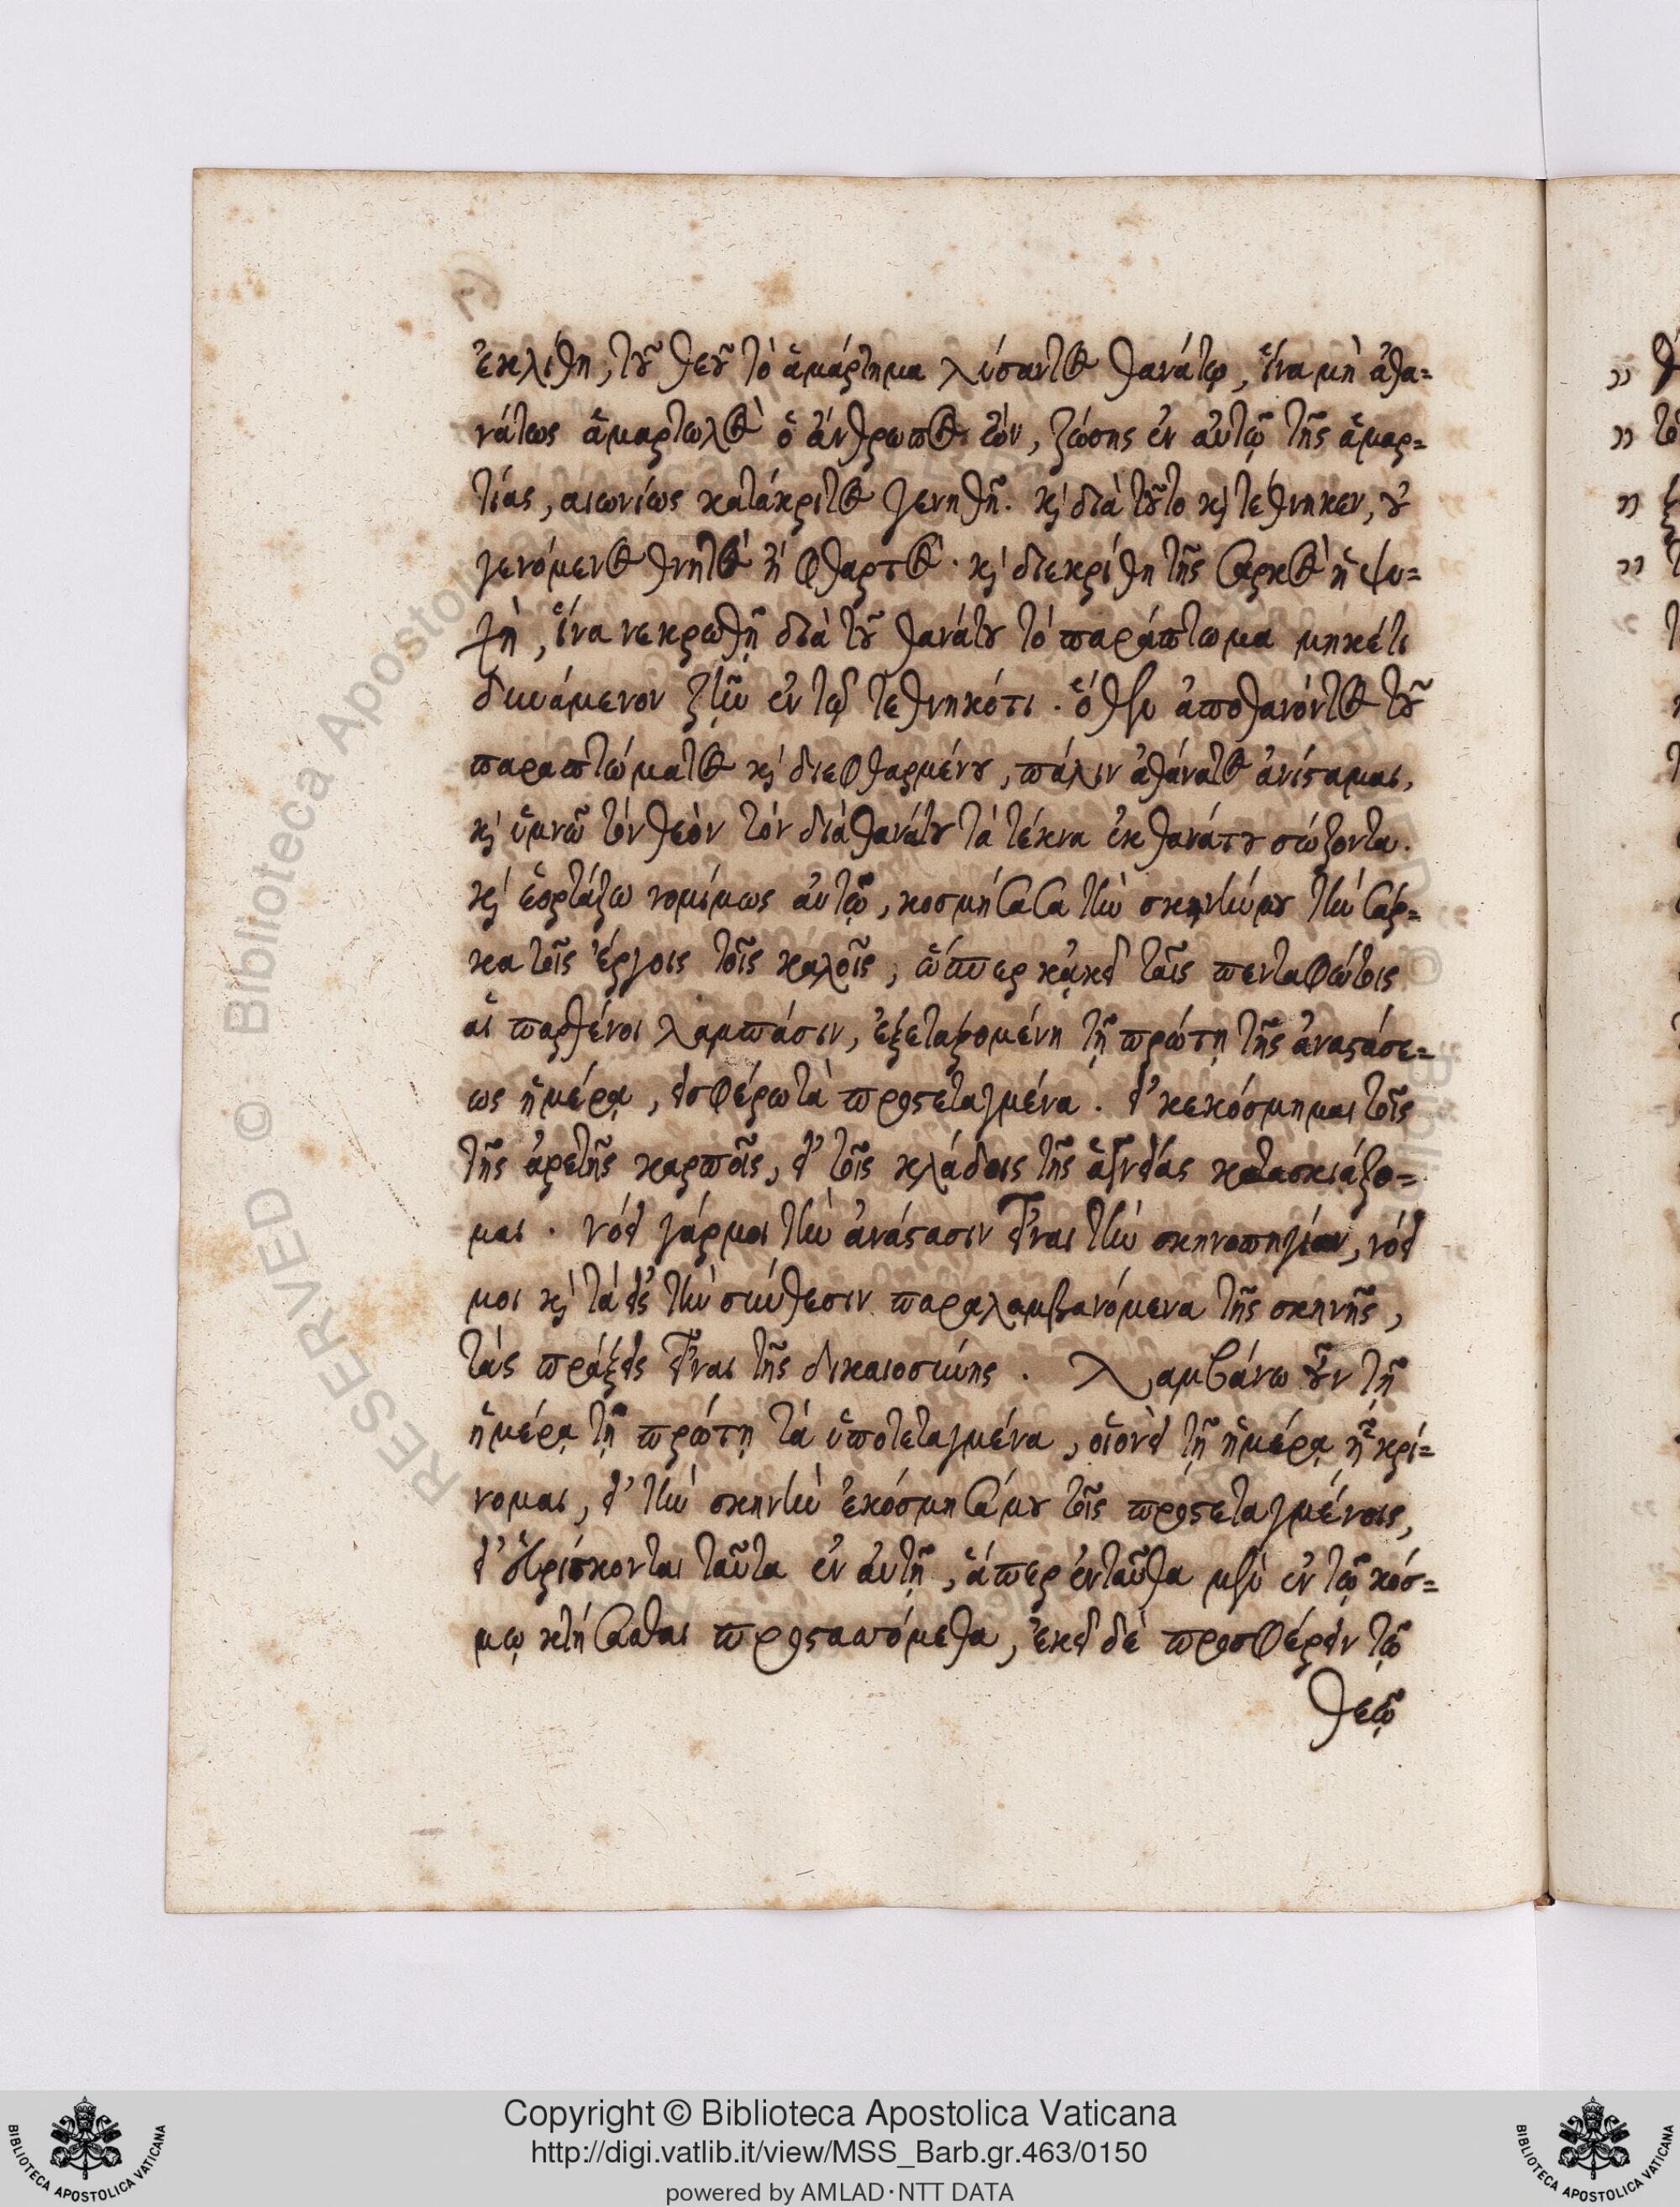 ἐκλίθη, τοῦ θεοῦ τὸ ἁμάρτημα λύσαντος θανάτῳ, ἵνα μὴ ἀθα=
νάτως ἁμαρτωλὸς ὁ ἄνθρωπος ὢν, ζώσης ἐν αὐτῷ τῆς ἁμαρ=
τίας, αἰωνίως κατάκριτος γενηθῇ. καὶ διὰ τοῦτο καὶ τέθνηκεν, οὐ
γενόμενος θνητὸς ἢ φθαρτὸς. καὶ διεκρίθη τῆς σαρκὸς ἡ ψυ=
χὴ, ἵνα νεκρωθῇ διὰ τοῦ θανάτου τὸ παράπτωμα μηκέτι
δυνάμενον ζῆν ἐν τῷ τεθνηκότι. ὅθεν ἀποθανόντος τοῦ
παραπτώματος καὶ διεφθαρμένου, πάλιν ἀθάνατος ἀνίσταμαι,
καὶ ὑμνῶ τὸν θεὸν τὸν διὰ θανάτου τὰ τέκνα ἐκ θανάτου σώζοντα.
καὶ ἑορτάζω νομίμως αὐτῷ, κοσμήσασα τὴν σκηνήν μου τὴν σάρ=
κα τοῖς ἔργοις τοῖς καλοῖς, ὥσπερ κἀκεῖ ταῖς πενταφώτοις
αἱ παρθένοι λαμπάσιν, ἐξεταζομένη τῇ πρώτῃ τῆς ἀναστάσε=
ως ἡμέρᾳ, εἰ σφέρω τὰ προστεταγμένα. εἰ κεκόσμημαι τοῖς
τῆς ἀρετῆς καρποῖς, εἰ τοῖς κλάδοις τῆς ἁγνείας κατασκιάζο=
μαι. νόει γάρ μοι τὴν ἀνάστασιν εἶναι τὴν σκηνοπηγίαν, νόει
μοι καὶ τὰ εἰς τὴν σύνθεσιν παραλαμβανόμενα τῆς σκηνῆς,
τὰς πράξεις εἶναι τῆς δικαιοσύνης. Λαμβάνω οὖν τῇ
ἡμέρᾳ τῇ πρώτῃ τὰ ὑποτεταγμένα, οἱονεὶ τῇ ἡμέρᾳ ᾗ κρί=
νομαι, εἰ τὴν σκηνὴν ἐκόσμησά μου τοῖς προστεταγμένοις,
εἰ εὑρίσκονται ταῦτα ἐν αὐτῇ, ἅπερ ἐνταῦθα μὲν ἐν τῷ κόσ=
μῳ κτήσασθαι προστασσόμεθα, ἐκεῖ δὲ προσφέρειν τῷ
θεῷ
Copyright © Biblioteca Apostolica Vaticana
http://digi.vatlib.it/view/MSS_Barb.gr.463/0150
powered by AMLAD·NTT DATA